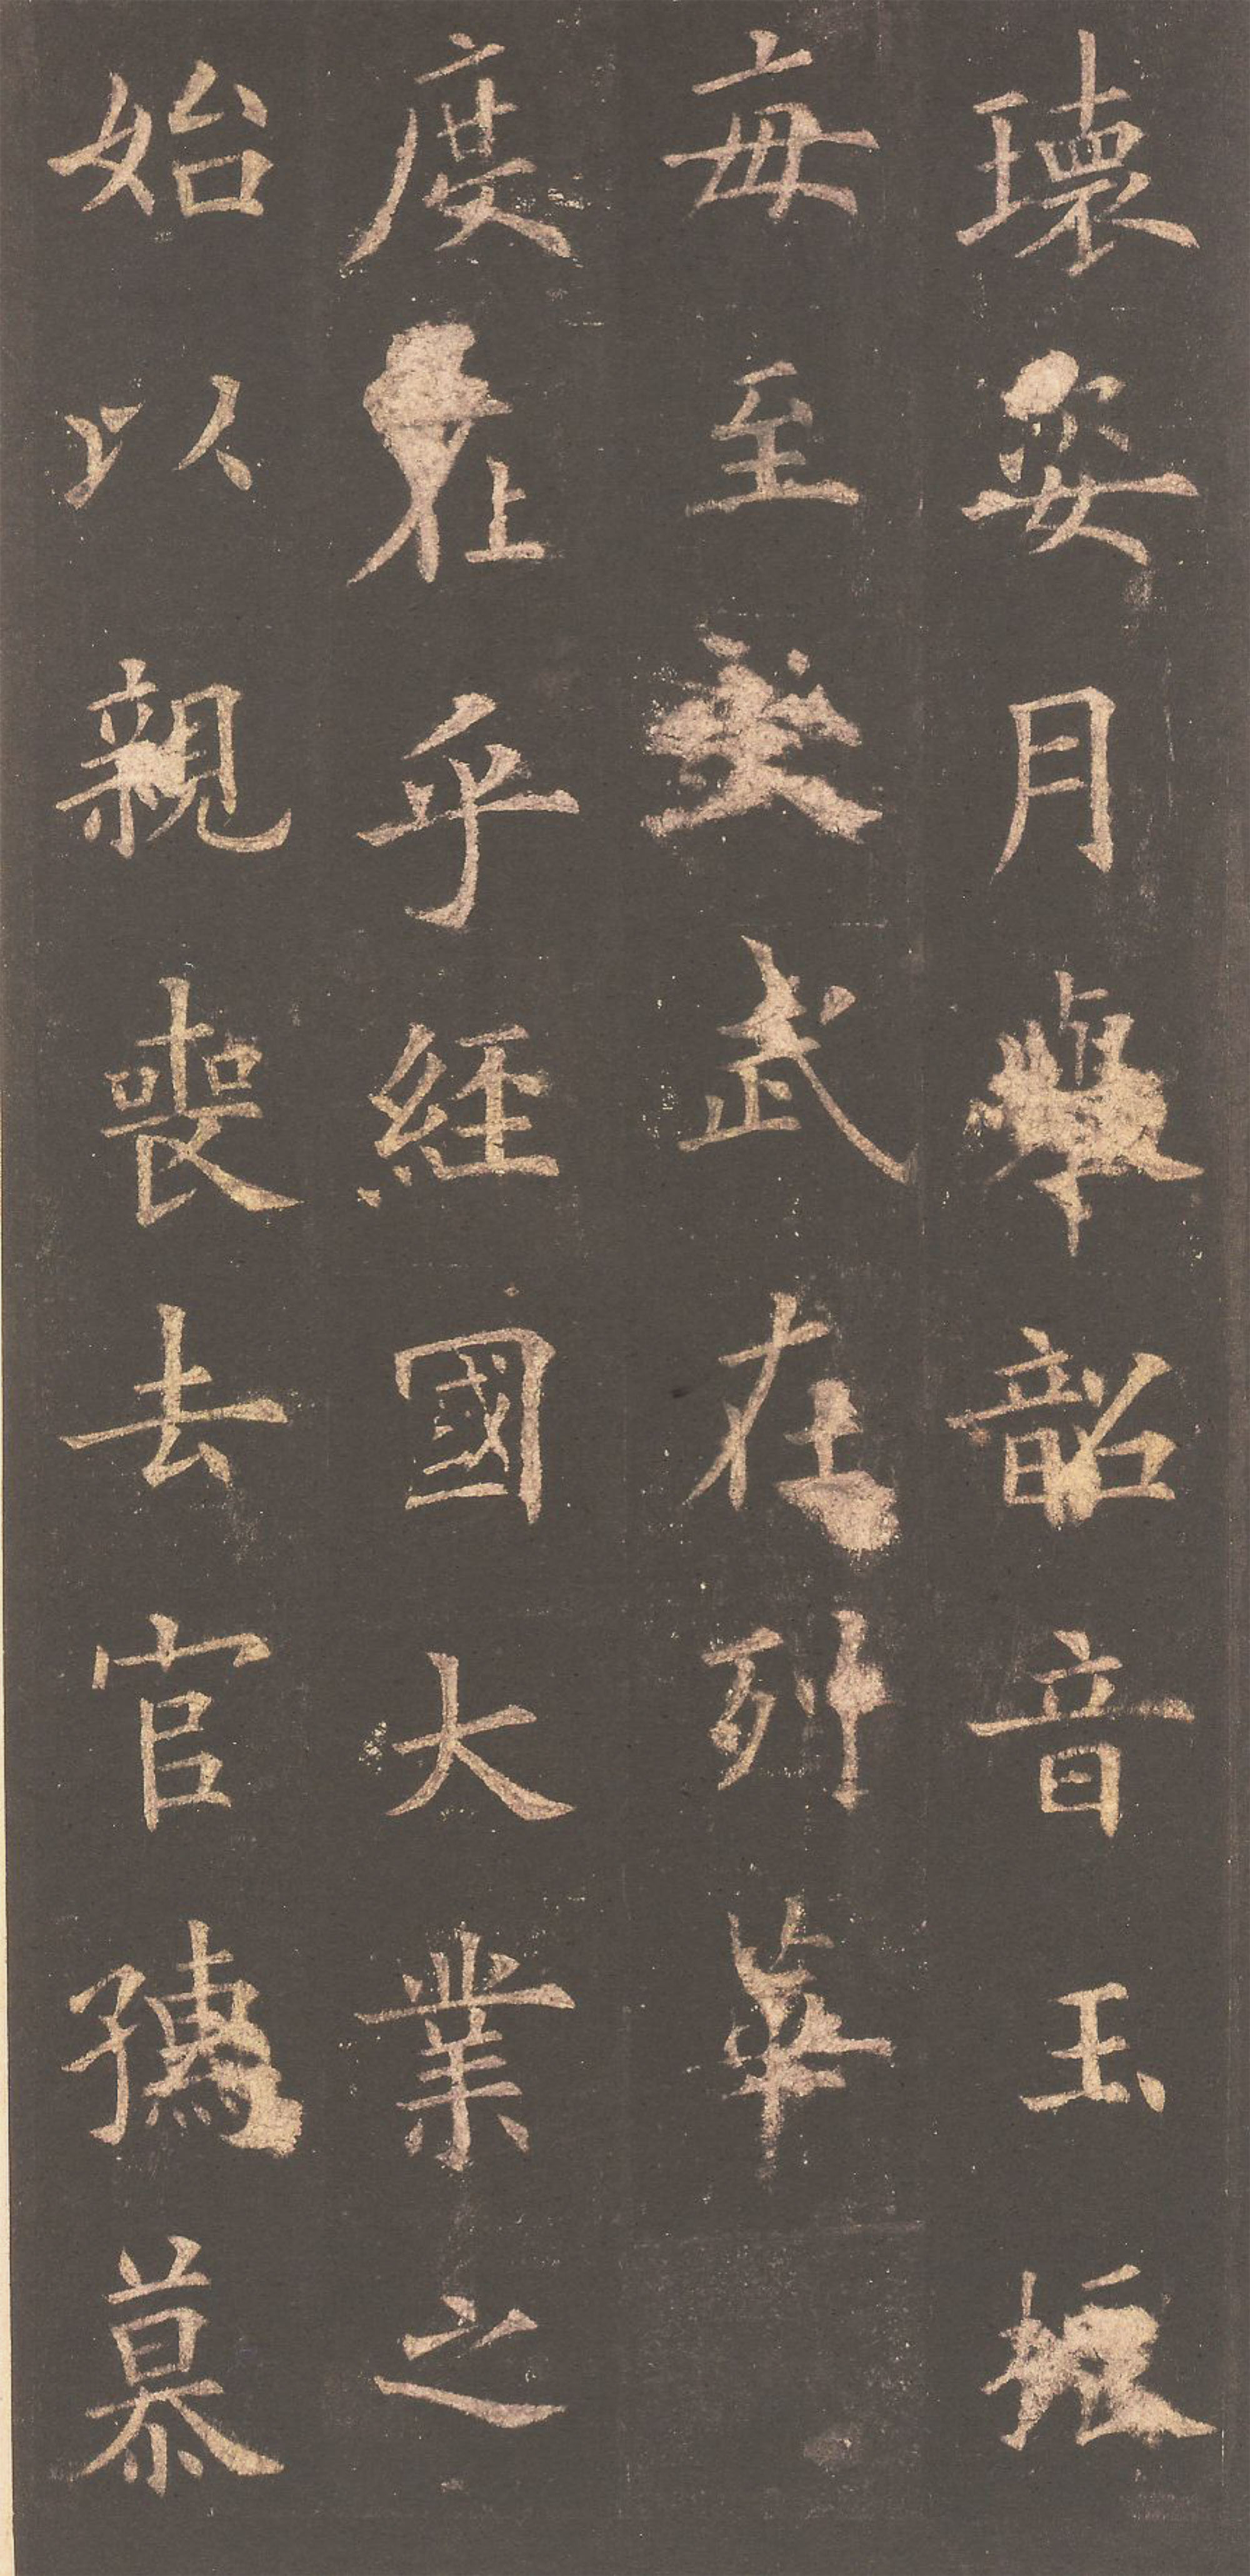 瓌姿月韶音玉
每至武在列華
度在乎經國大業之
始以親喪去官孺慕